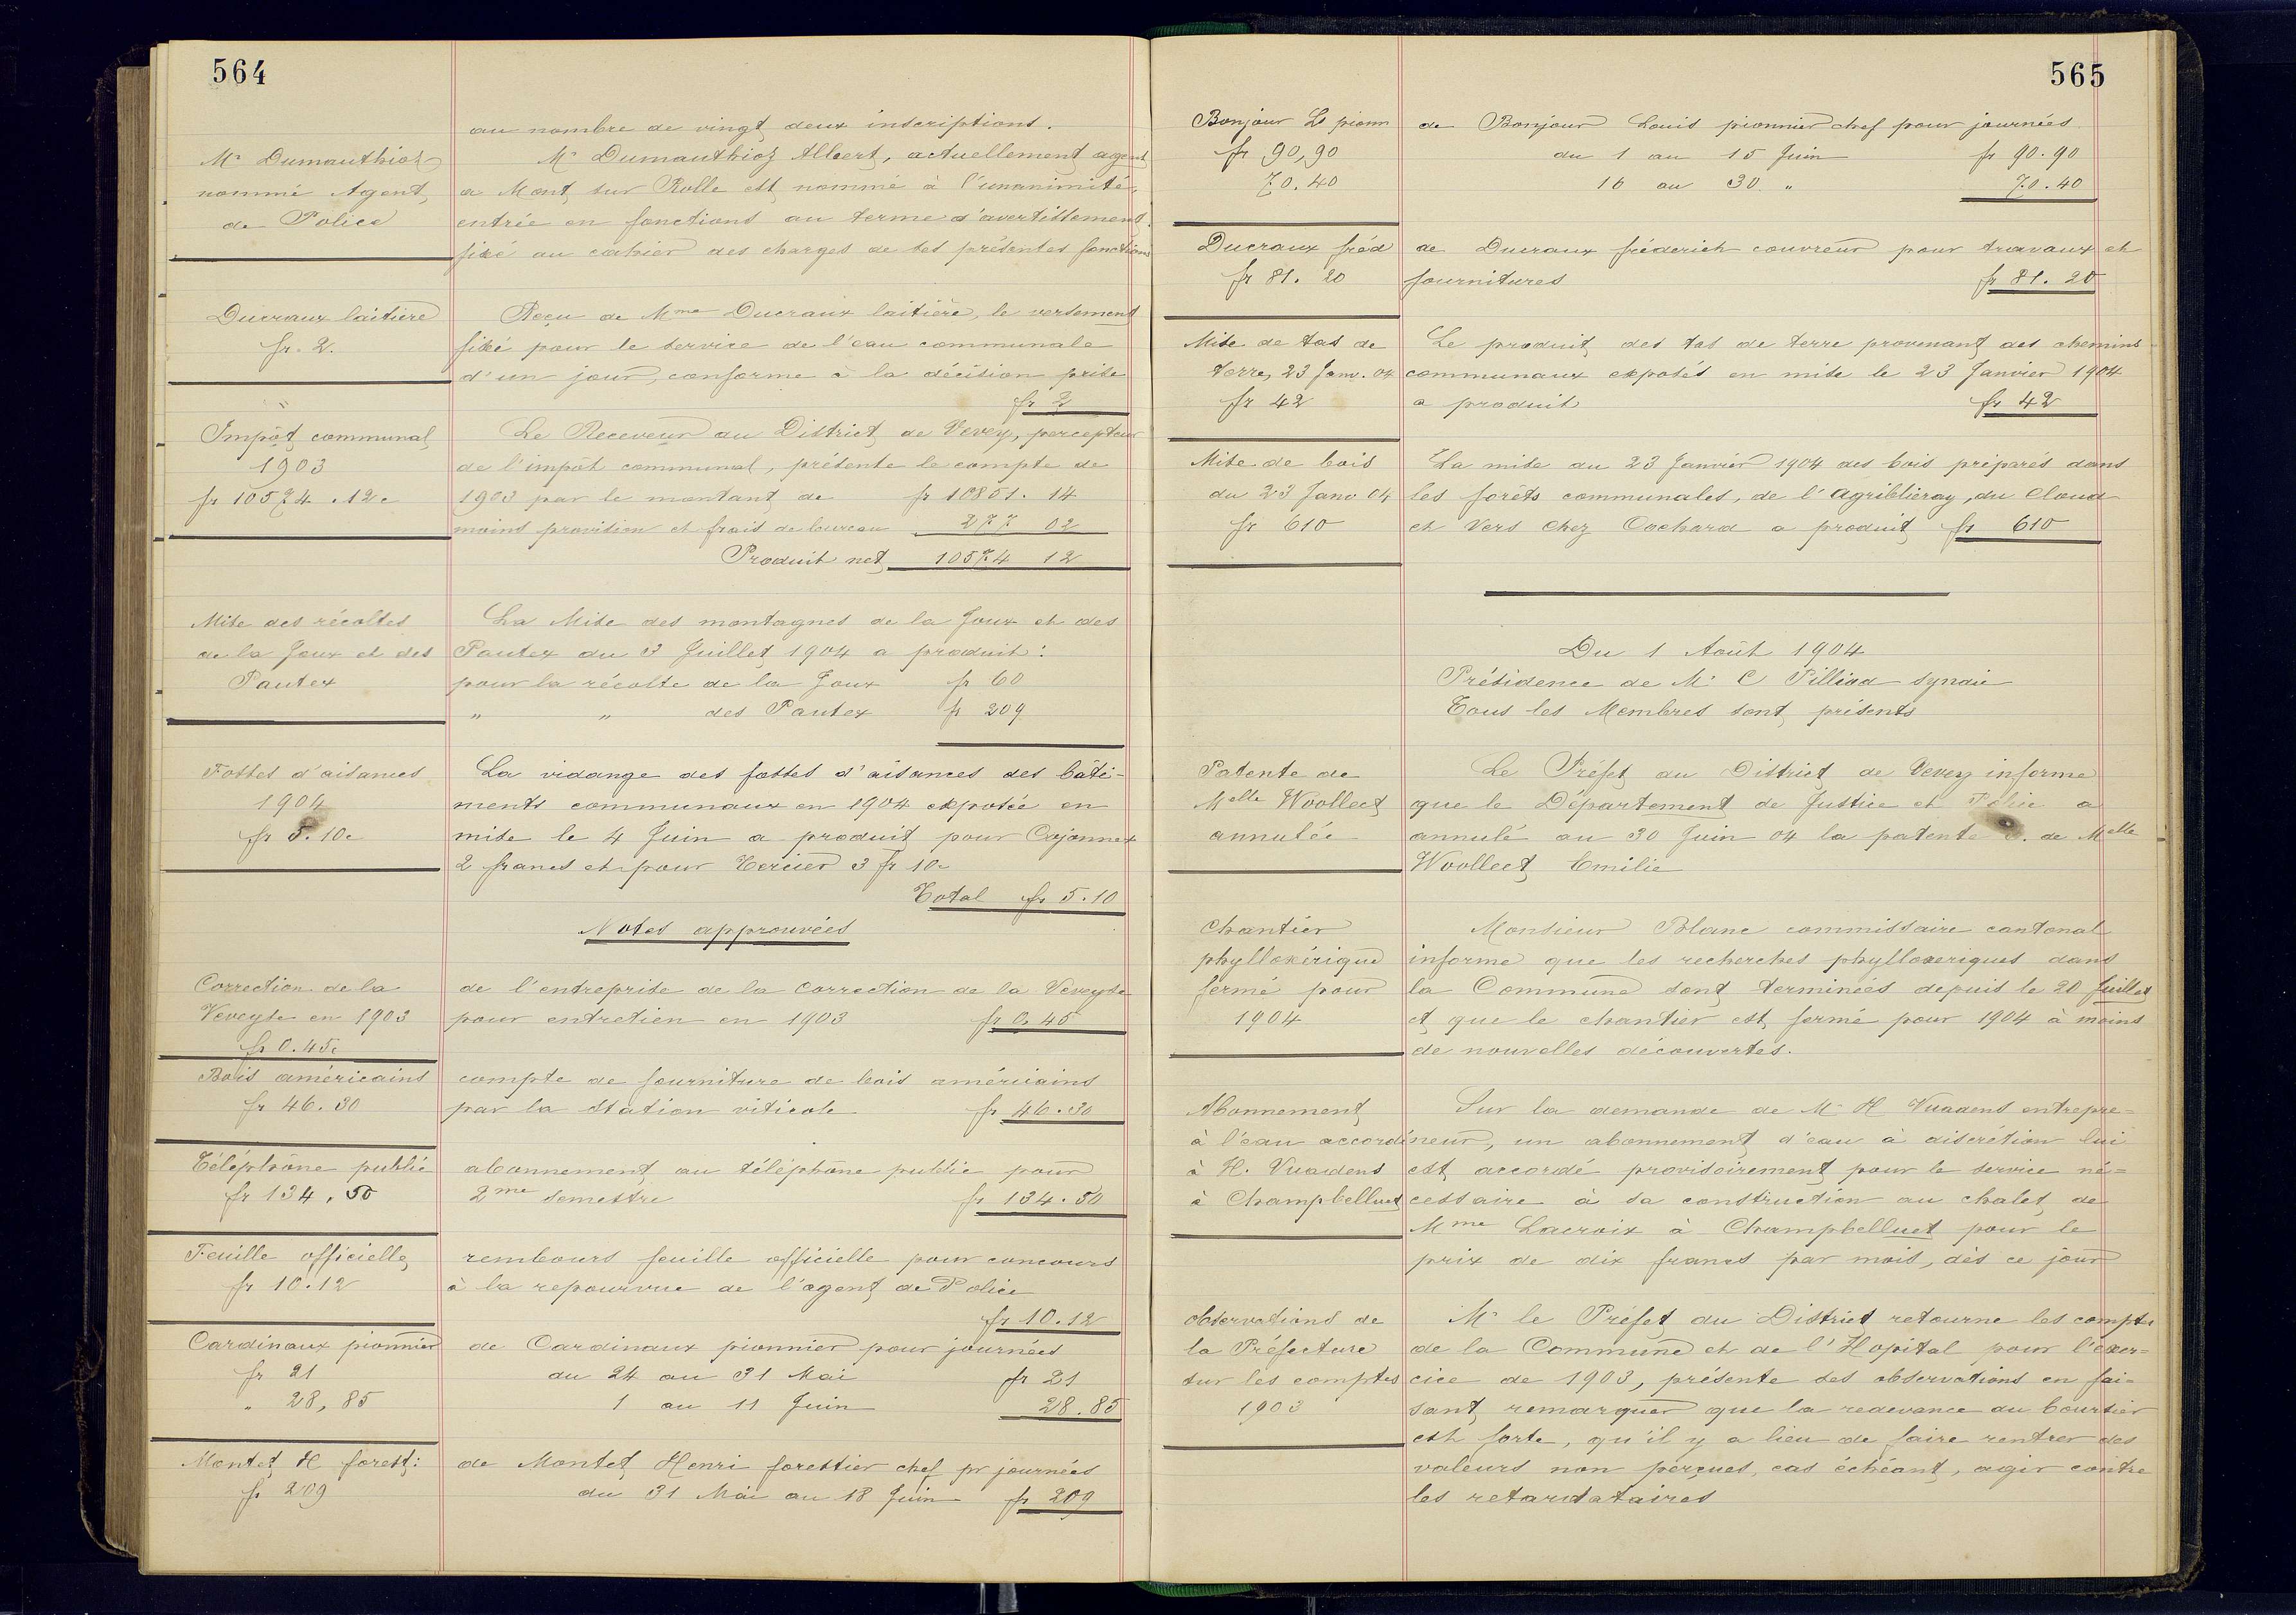 564
au nombre de vingt deux inscriptions.
Mr Dumauthioz
nommé Agent
de Police
Mr Dumauthioz Albert, actuellement agent
a Mont sur Rolle est nommé à l'unanimité,
entrée en fonctions au terme d'avertissement
fixé au cahier des charges de ses présentes fonctions
Ducraux laitière
fr. 2.
Reçu de Mme Ducraux laitière, le versement
fixé pour le service de l'eau communale
d'un jour, conforme à la décision prise
fr 2
Impôt communal
1903
fr 10574.12c
Le Receveur du District de Vevey, percepteur
de l'impôt communal, présente le compte de
1903 par le montant de fr 10851. 14
moins provision et frais de bureau 277 02
Produit net 10574 12
Mise des récoltes
de la Joux et des
Pautex
La Mise des montagnes de la Joux et des
Pautex du 3 Juillet 1904 a produit:
pour la récolte de la Joux fr 60
" " des Pautex fr 209
Fosses d'aisances
1904
fr 5.10c
La vidange des fosses d'aisances des bâti-
ments communaux en 1904 exposée en
mise le 4 Juin a produit pour Cojonnex
2 francs et pour Tercier 3 fr 10c
Total fr 5.10
Notes approuvées
Correction de la
Veveyse en 1903
fr 0.45c
de l'entreprise de la correction de la Veveyse
pour entretien en 1903 fr 0.45
Bois américains
fr 46.30
compte de fourniture de bois américains
par la station viticole fr 46.30
Téléphone public
fr 134.50
abonnement au téléphone public pour
2me semestre fr 134.50
Feuille officielle
fr 10.12
rembours feuille officielle pour concours
à la repourvue de l'agent de Police
fr 10.12
Cardinaux pionnier
fr 21
" 28,85
de Cardinaux pionnier pour journées
du 24 au 31 Mai fr 21
1 au 11 Juin 28.85
Montet H forest:
fr 209
de Montet Henri forestier chef pr journées
du 31 Mai au 18 Juin fr 209
565
Bonjour Ls pionn
fr 90,90
70.40
de Bonjour Louis pionnier chef pour journées
du 1 au 15 Juin fr 90.90
16 au 30 " 70.40
Ducraux fréd
fr 81.20
de Ducraux fréderich couvreur pour travaux et
fournitures fr 81.20
Mise de tas de
terre, 23 Janv. 04
fr 42
Le produit des tas de terre provenant des chemins
communaux exposés en mise le 23 Janvier 1904
a produit fr 42
Mise de bois
du 23 Janv 04
fr 610
La mise du 23 Janvier 1904 des bois préparés dans
les forêts communales, de l'Agriblieray, du Cloud
et Vers Chez Cochard a produit fr 610
Du 1 Août 1904
Présidence de Mr C Pilliod syndic
Tous les Membres sont présents
Patente de
Melle Woollect
annulée
Le Préfet du District de Vevey informe
que le Département de Justice et Police a
annulé au 30 Juin 04 la patente de Melle
Woollect Emilie
Chantier
phylloxérique
fermé pour
1904
Monsieur Blanc commissaire cantonal
informe que les recherches phylloxeriques dans
la Commune sont terminées depuis le 20 juillet
et que le chantier est fermé pour 1904 à moins
de nouvelles découvertes.
Abonnement
à l'eau accordé
à H. Vuadens
à Champbelluet
Sur la demande de Mr H Vuadens entrepre=
neur, un abonnement d'eau à discrétion lui
est accordé provisoirement pour le service né=
cessaire à sa construction au chalet de
Mme Lacroix à Champbelluet pour le
prix de dix francs par mois, dès ce jour
Observations de
la Préfecture
sur les comptes
1903
Mr le Préfet du District retourne les comptes
de la Commune et de l'Hopital pour l'exer=
cice de 1903, présente ses observations en fai=
sant remarquer que la redevance du boursier
est forte, qu'il y a lieu de faire rentrer des
valeurs non perçues, cas échéant, agir contre
les retardataires